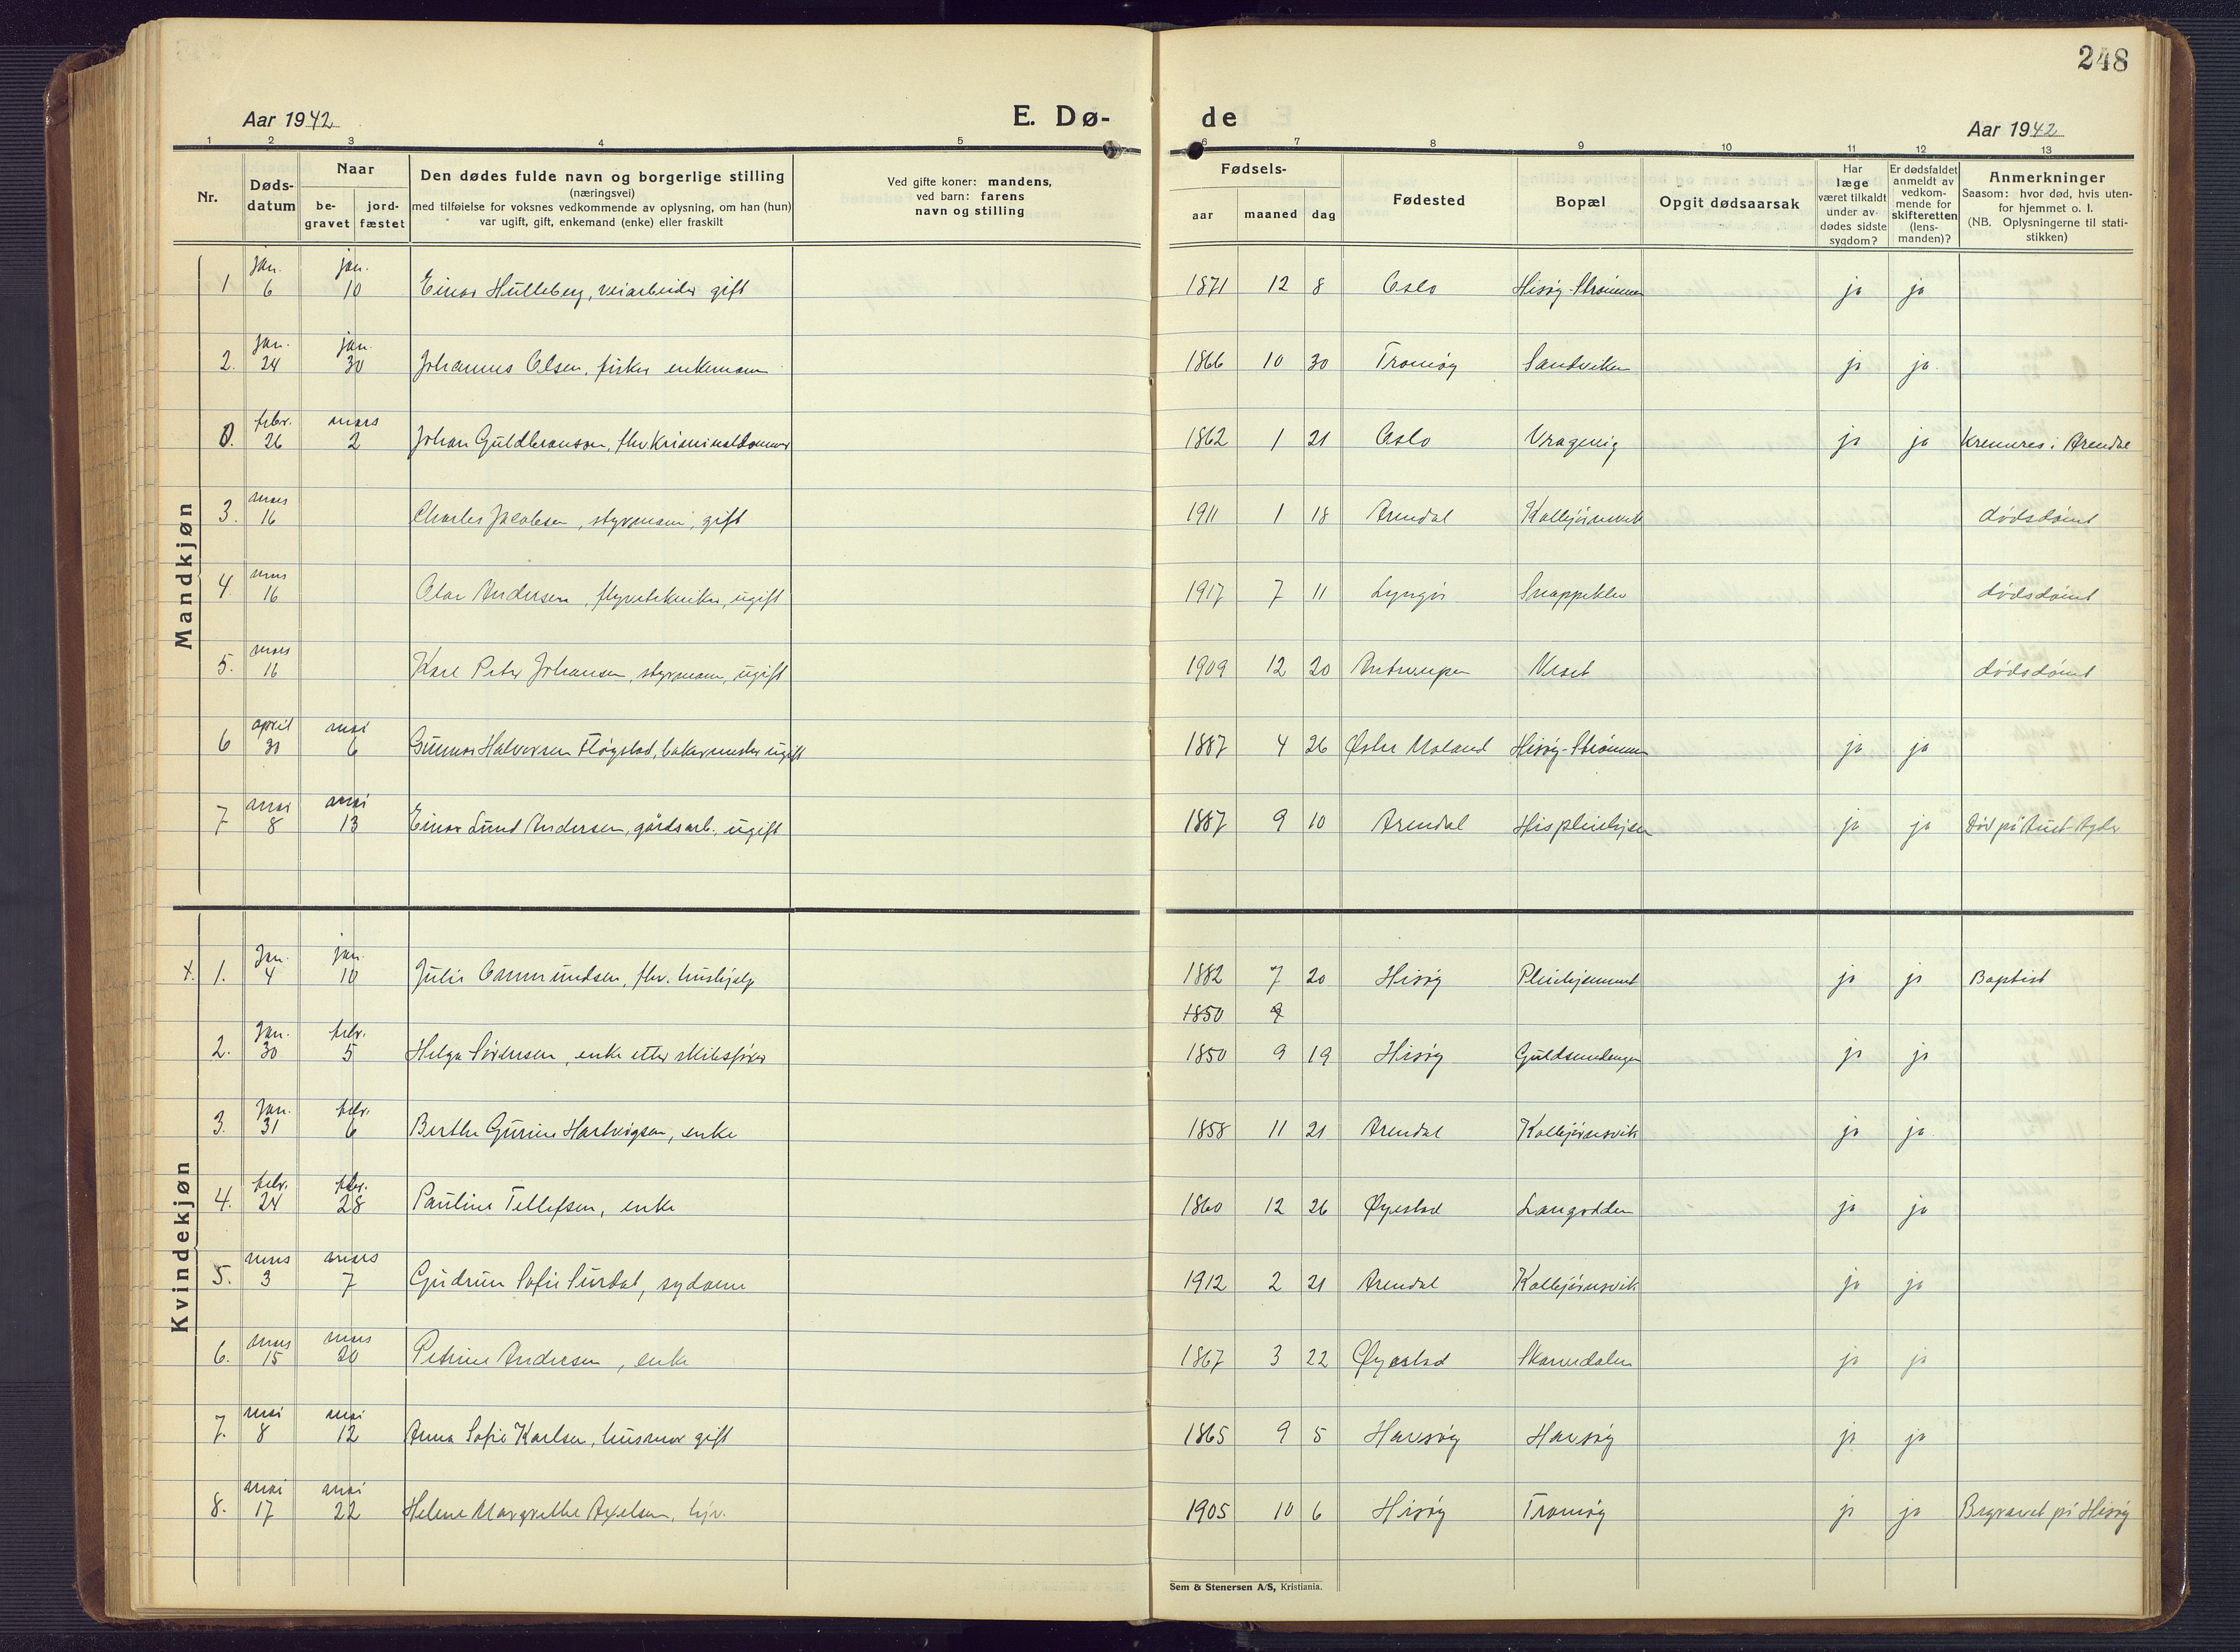 248
Aar 1942
E. Dø-
de
Aar 1942
1 2 3 4 5 6 7 8 9 10 11 12 13
Nr.
Døds-
datum
Naar
be-
gravet
jord-
fæstet
Den dødes fulde navn og borgerlige stilling
(næringsvei)
med tilføielse for voksnes vedkommende av oplysning, om han (hun)
var ugift, gift, enkemand (enke) eller fraskilt
Ved gifte koner: mandens,
ved barn: farens
navn og stilling
Fødsels-
aar maaned dag
Fødested
Bopæl
Opgit dødsaarsak
Har
læge
været tilkaldt
under av-
dødes sidste
sygdom?
Er dødsfaldet
anmeldt av
vedkom-
mende for
skifteretten
(lens-
manden)?
Anmerkninger
Saasom: hvor død, hvis uten-
for hjemmet o. l.
(NB. Oplysningerne til stati-
stikken)
Mandkjøn
jan. jan.
1 6 10 Einar Hulleberg, veiarbeider gift 1871 12 8 Oslo Hisøy-Strømmen ja ja
jan. jan.
2. 24 30 Johannes Olsen, fisker enkemann 1866 10 30 Tromøy Sandviken ja ja.
febr. mars
0. 26 2 Johan Guldbransson, fhv. Kriminaldommer 1862 1 21 Oslo Vragevig ja ja Kremeres i Arendal
mars
3. 16 Charles Jacobsen, styrmann, gift 1911 1 18 Arendal Kolbjørnsvik dødsdømt
mars
4. 16 Olav Andersen, flyvetekniker, ugift 1917 7 11 Lyngør Snappekleiv dødsdømt
mars
5. 16 Karl Peter Johansen, styrmann, ugift 1909 12 20 Antwerpen Neset dødsdømt
april mai
6 30 6 Gunnar Halvorsen Fløystad, bakermester ugift 1887 4 26 Øster Moland Hisøy-Strømmen ja ja
mai mai
7 8 13 Einar Lund Andersen, gårdsarb., ugift 1887 9 10 Arendal Hispleiehjem ja ja Død på Aust-Agder
Kvindekjøn
jan. jan.
x. 1. 4 10 Julie Ommundsen, fhv. hushjelp 1882 7 20 Hisøy Pleiehjemmet ja ja Baptist
1850 9
Jan. febr.
2. 30 5 Helga Sørensen, enke etter skibsfører 1850 9 19 Hisøy Guldsmedengen ja ja
Jan. febr.
3. 31 6 Berthe Gurine Hartvigsen, enke 1858 11 21 Arendal Kolbjørnsvik ja ja
febr. febr.
4. 24 28 Pauline Tellefsen, enke 1860 12 26 Øyestad Langodden ja ja
mars mars
5. 3 7 Gudrun Sofie Surdal, sydame 1912 2 21 Arendal Kolbjørnsvik ja ja
mars mars
6. 15 20 Petrine Andersen, enke 1867 3 22 Øyestad Skarvedalen ja ja
mai mai
7. 8 12 Anna Sofie Karlsen, husmor gift 1865 9 5 Havsøy Havsøy ja ja
mai mai
8. 17 22 Helene Margrethe Axelsen, hjv. 1905 10 6 Hisøy Tromøy ja ja Begravet på Hisøy
Sem & Stenersen A/S, Kristiania.